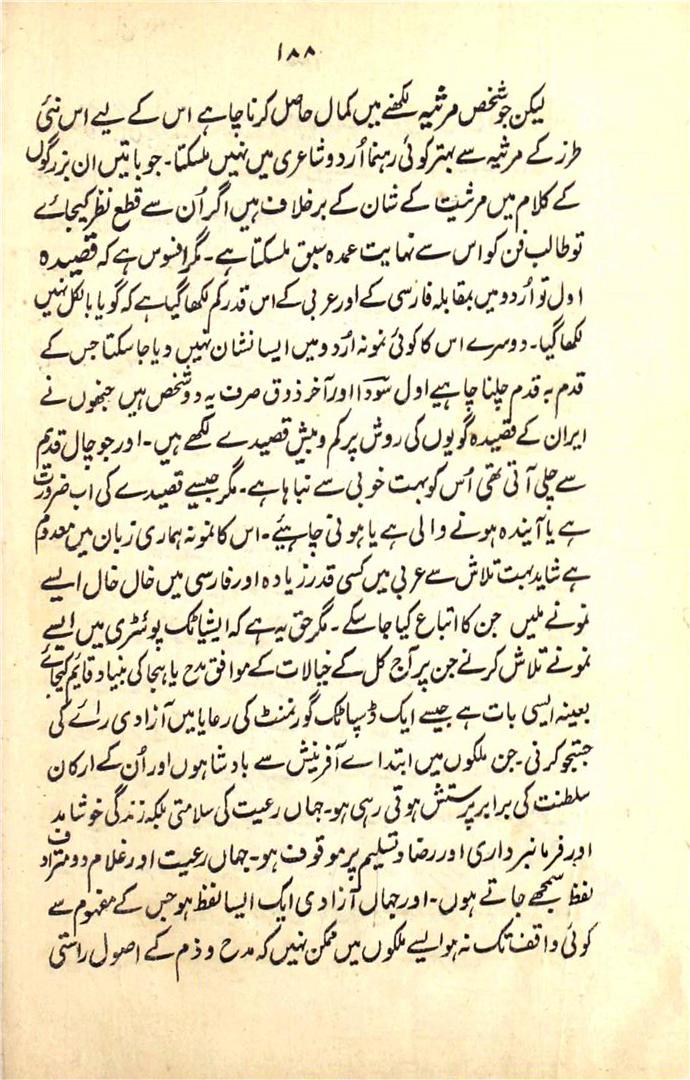 ۱۸۸
لیکن جو شخص مرثیہ لکھنے میں کمال حاصل کرنا چاہے اس کے لیے اس نئی
طرز کے مرثیہ سے بہتر کوئی رہنما اُردو شاعری میں نہیں ملسکتا۔ جو باتیں ان بزرگوں
کے کلام میں مرثیت کے شان کے برخلاف ہیں اگر اُن سے قطع نظر کیجائے
تو طالب فن کو اس سے نہایت عمدہ سبق ملسکتا ہے۔ مگر افسوس ہے کہ قصیدہ
اول تو اُردو میں بمقابلہ فارسی کے اور عربی کے اس قدر کم لکھا گیا ہے کہ گویا بالکل نہیں
لکھا گیا۔ دوسرے اس کا کوئی نمونہ اردو میں ایسا نشان نہیں دیا جا سکتا جس کے
قدم بہ قدم چلنا چاہیے اول سودا اور آخر ذوق صرف یہ دو شخص ہیں جنھوں نے
ایران کے قصیدہ گویوں کی روش پر کم و بیش قصیدے لکھے ہیں۔ اور جو چال قدیم
سے چلی آتی تھی اُس کو بہت خوبی سے نباہا ہے۔ مگر جیسے قصیدے کی اب ضرورت
ہے یا آیندہ ہونے والی ہے یا ہونی چاہیئے۔ اس کا نمونہ ہماری زبان میں معدوم
ہے شاید بہت تلاش سے عربی میں کسی قدر زیادہ اور فارسی میں خال خال ایسے
نمونے ملیں جن کا اتباع کیا جا سکے۔ مگر حق یہ ہے کہ ایشیاٹک پوئٹری میں ایسے
نمونے تلاش کرنے جن پر آج کل کے خیالات کے موافق مدح یا ہجا کی بنیاد قایم کیجائے
بعینہ ایسی بات ہے جیسے ایک ڈسپاٹک گورنمنٹ کی رعایا میں آزادی رائے کی
جستجو کرنی۔ جن ملکوں میں ابتداے آفرینش سے بادشاہوں اور اُن کے ارکان
سلطنت کی برابر پرستش ہوتی رہی ہو۔ جہاں رعیت کی سلامتی بلکہ زندگی خوشامد
اور فرمانبرداری اور رضا و تسلیم پر موقوف ہو۔ جہاں رعیت اور غلام دو مترادف
لفظ سمجھے جاتے ہوں۔ اور جہاں آزادی ایک ایسا لفظ ہو جس کے مفہوم سے
کوئی واقف تک نہ ہو ایسے ملکوں میں ممکن نہیں کہ مدح و ذم کے اصول راستی